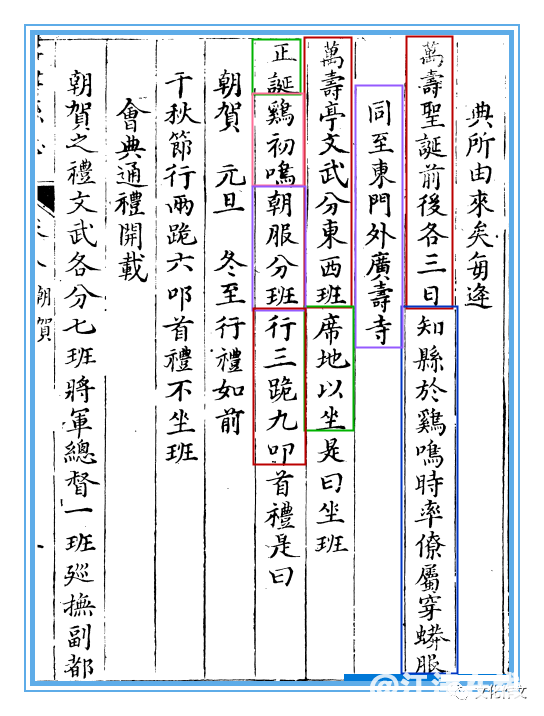 典所由來矣每逢
萬壽聖誕前後各三日知縣於鷄鳴時率僚屬穿蟒服
同至東門外廣壽寺
萬壽亭文武分東西班席地以坐是曰坐班
正誕鷄初鳴朝服分班行三跪九叩首禮是曰
朝賀 元旦 冬至行禮如前
千秋節行兩跪六叩首禮不坐班
會典通禮開載
朝賀之禮文武各分七班將軍總督一班廵撫副都
朝賀